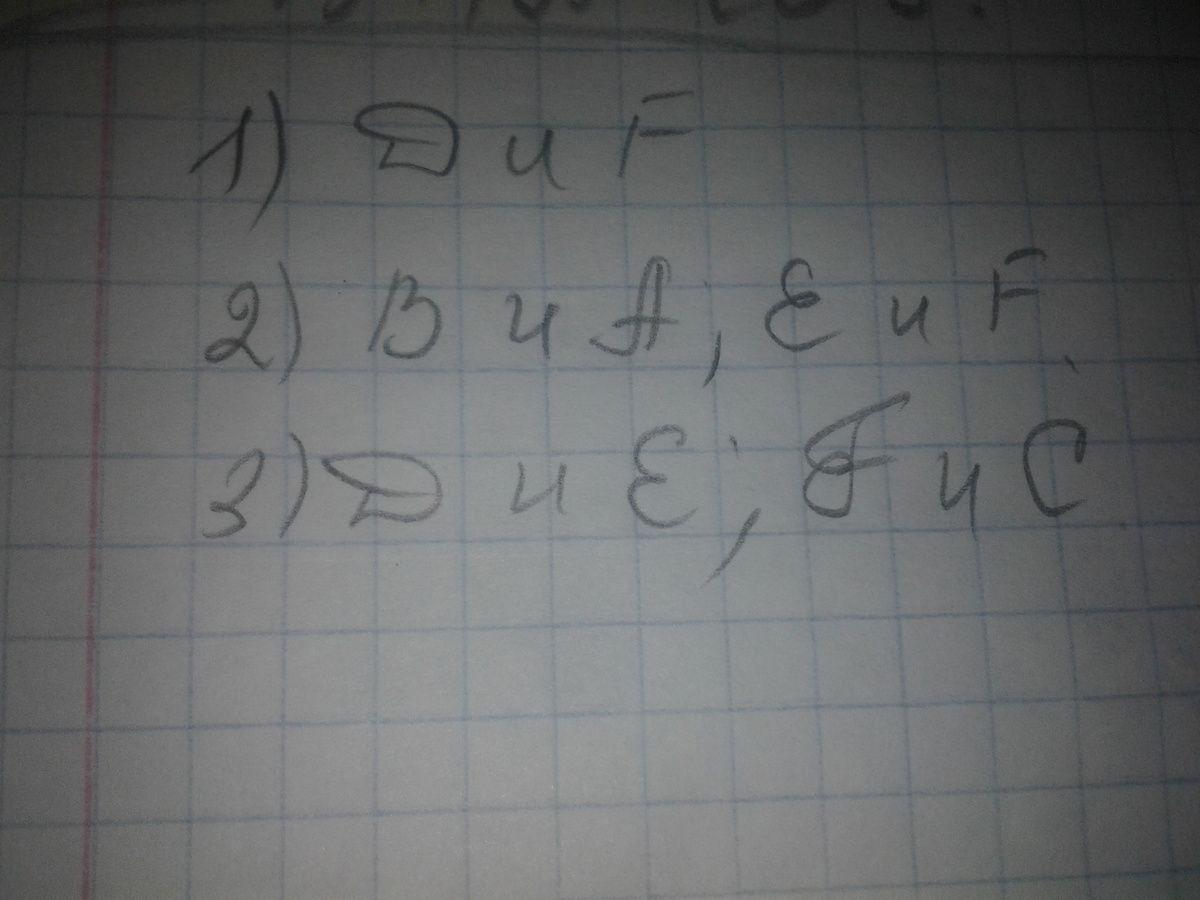 1) D и F
2) B и A, E и F.
3) D и E; F и C